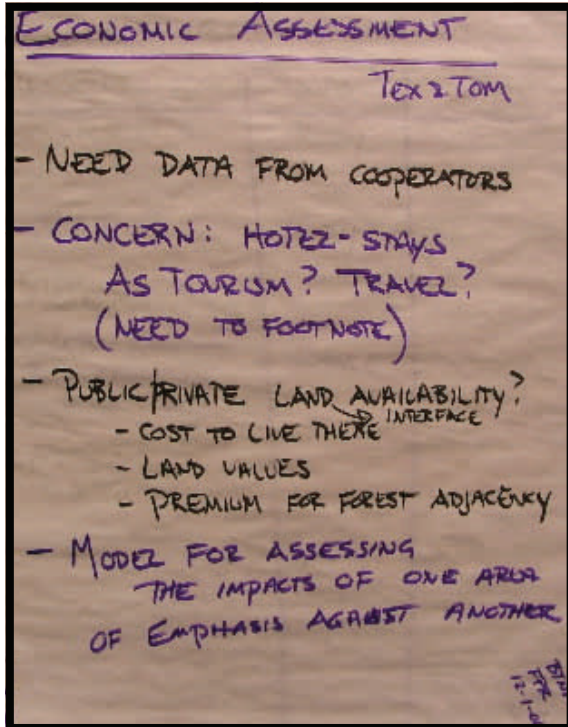 ECONOMIC ASSESSMENT
TEX & TOM
- NEED DATA FROM COOPERATORS
- CONCERN: HOTEL-STAYS
AS TOURISM? TRAVEL?
(NEED TO FOOTNOTE)
- PUBLIC/PRIVATE LAND AVAILABILITY?
INTERFACE
- COST TO LIVE THERE
- LAND VALUES
- PREMIUM FOR FOREST ADJACENCY
- MODEL FOR ASSESSING
THE IMPACTS OF ONE AREA
OF EMPHASIS AGAINST ANOTHER